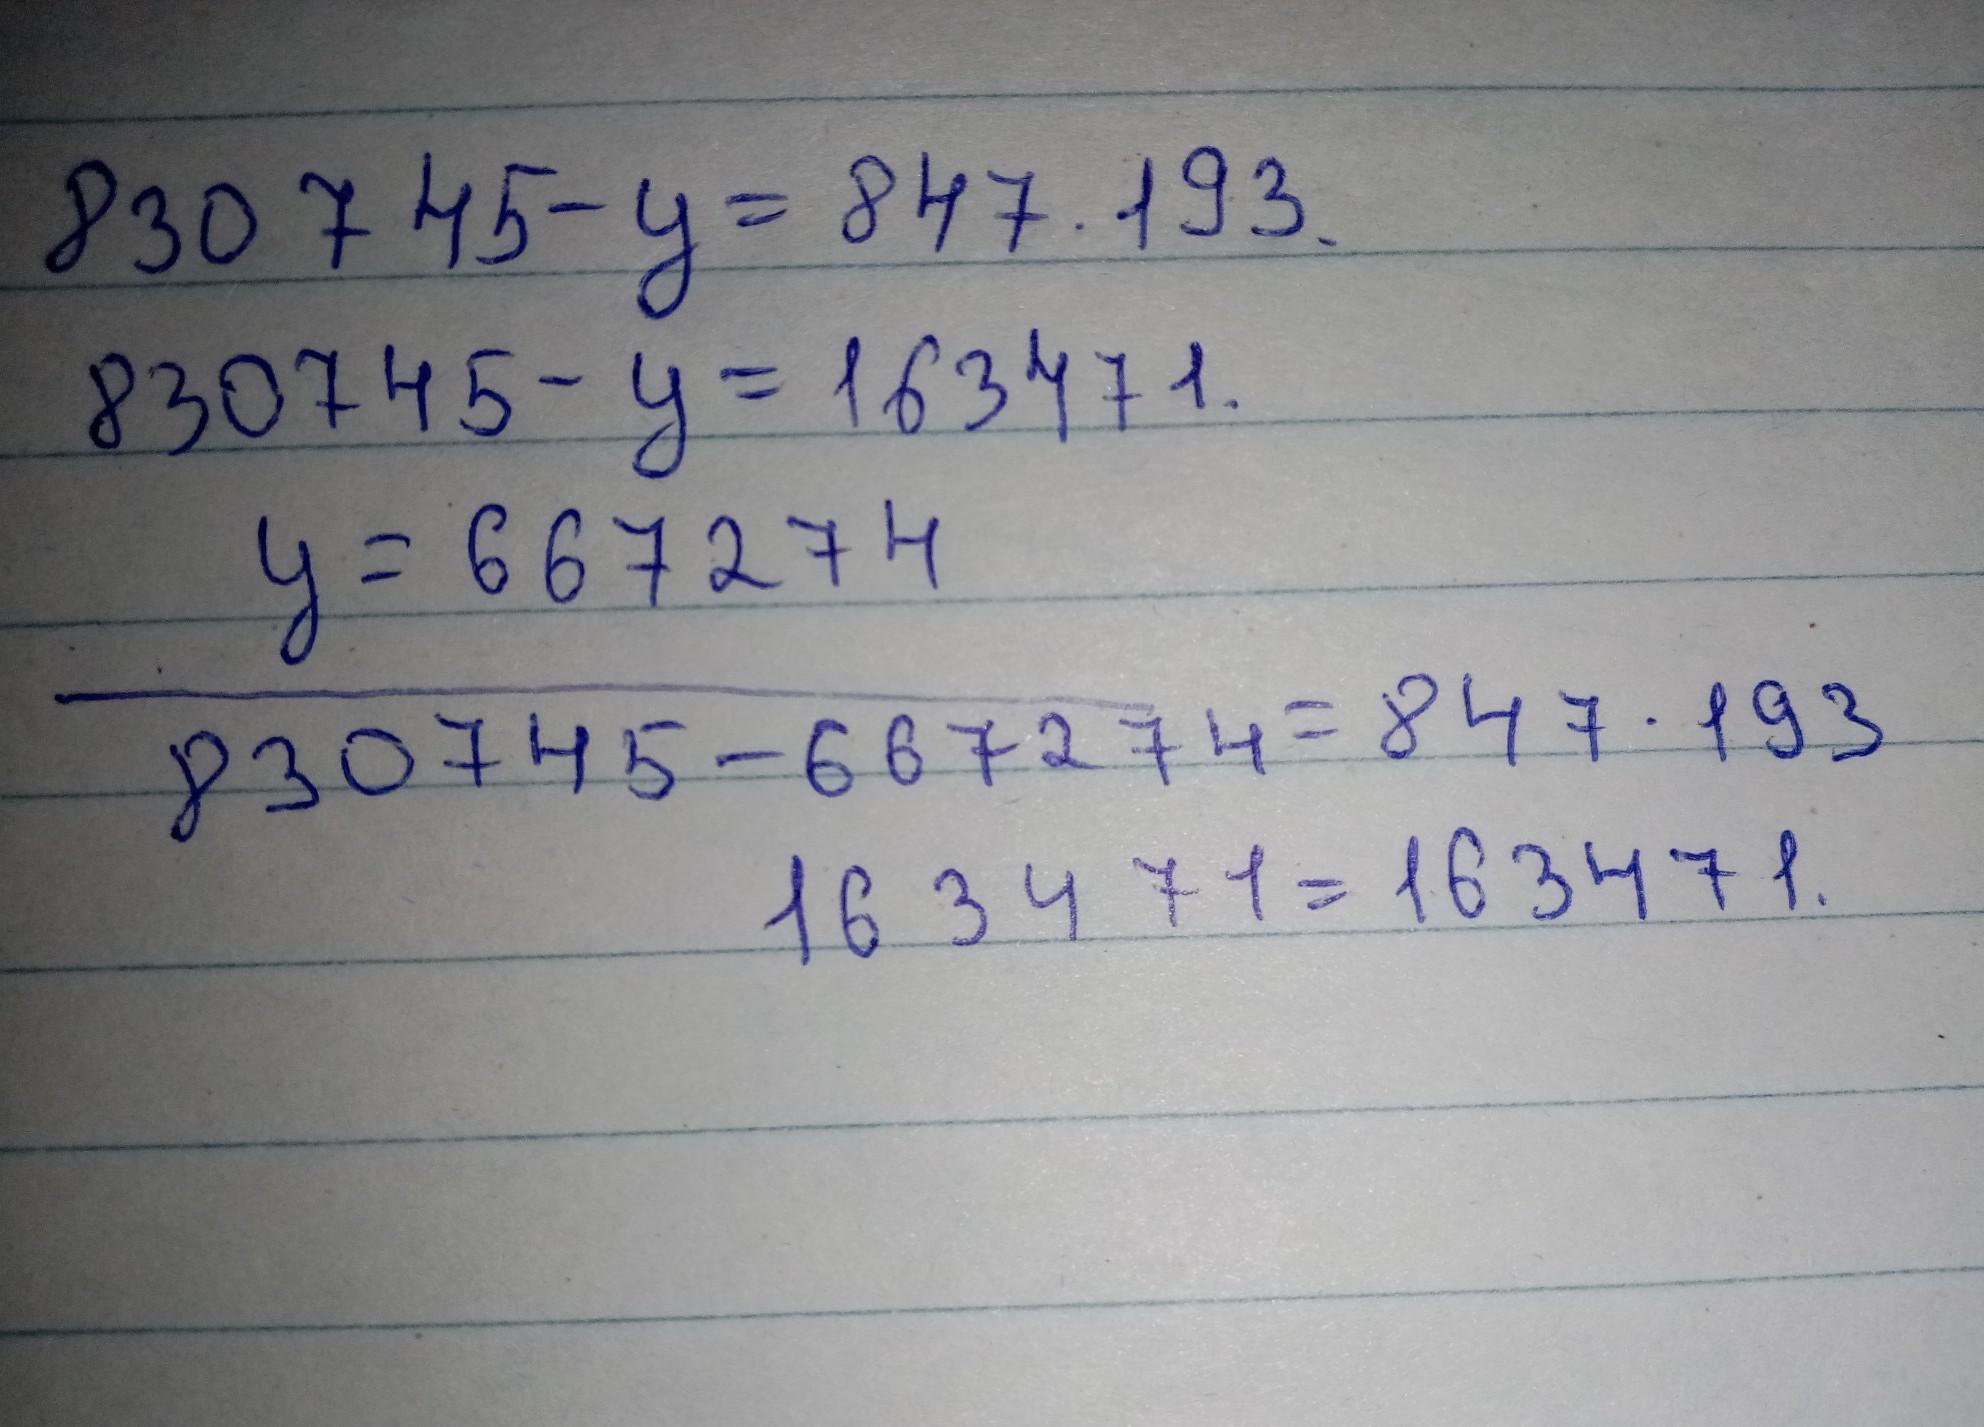 830745-y=847.193.
830745-y=163471.
y=667274
830745-667274=847.193
163471=163471.